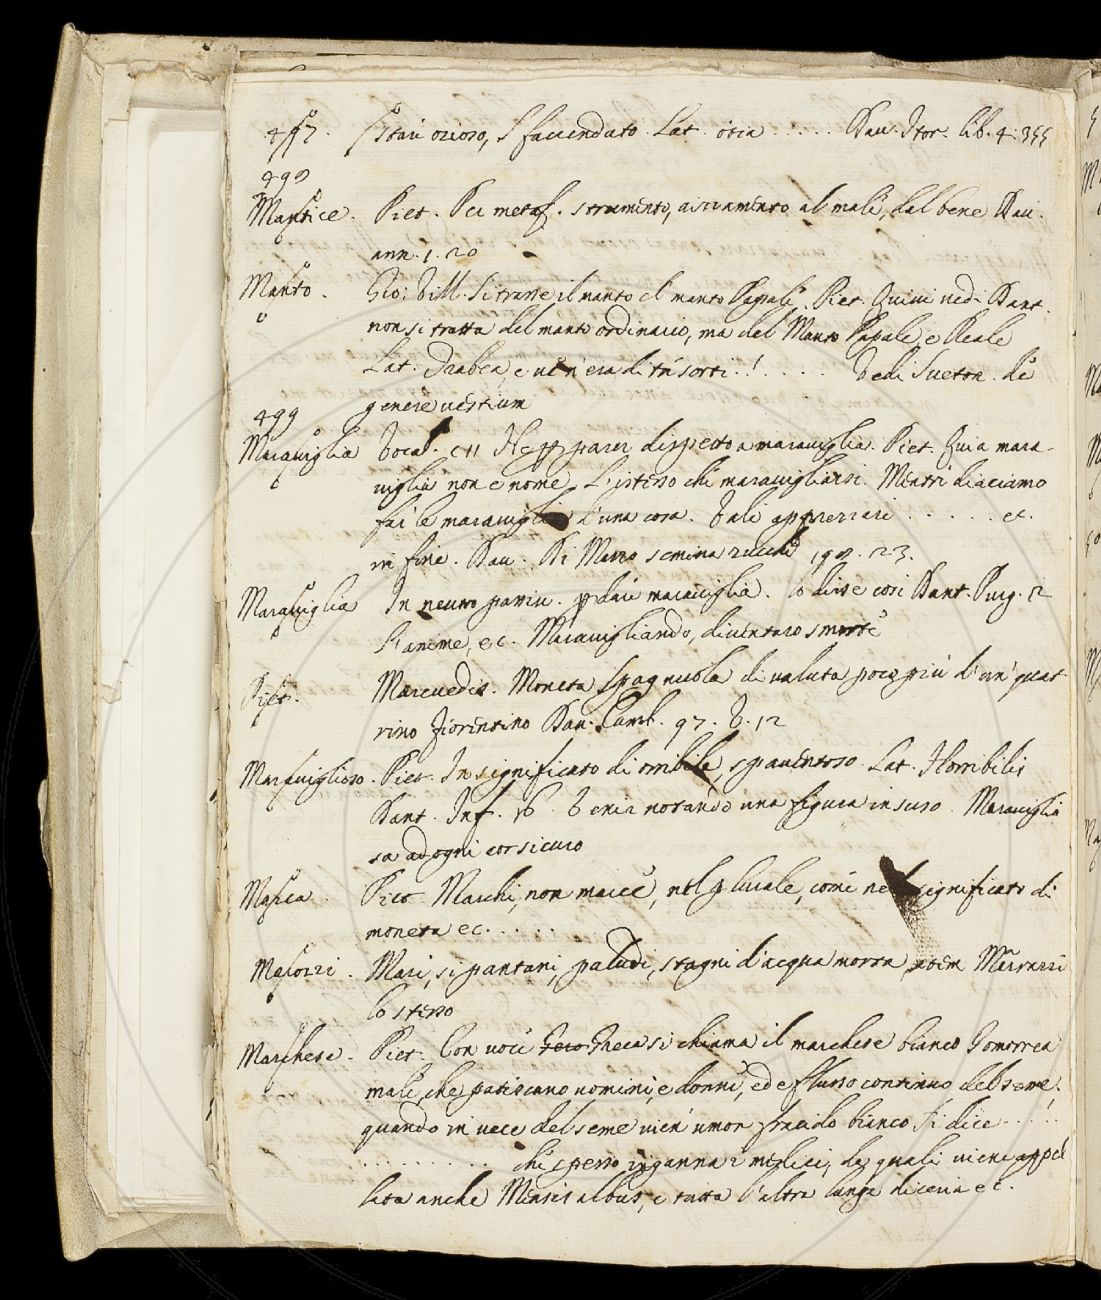 Star ozioso, sfaccendato. Lat. otia ..... Dav. Stor. lib. 4. 355
498
Mantice. Piet. Per metaf. strumento, aizzamento al male, dal bene Dav.
ann. 1. 20
Manto. Gio: Vill. Si trasse il manto el manto Papale. Piet. Quivi nedi Dant.
non si tratta del manto ordinario, ma del Manto Papale, e Reale
Lat. Trabea, e ve n'era di tre sorti .!..... Vedi Sueton. de
genere vestium
499
Maraviglia Vocab. parer dispetto a maraviglia. Piet. Qui a mara-
viglia non e nome, L'istesso che maravigliarsi. Mentre diciamo
far le maraviglie d'una cosa. Vale apprezzare ..... ec.
in fine. Dav. Di Marzo semina zucche 198. 23.
Maraviglia In neutro passiv. maraviglia. lo disse cosi Dant. Purg. 2
L'anime, ec. Maravigliando, diventaro smorte
Piet. Maravedis. Moneta Spagnuola di valuta poca più d'un quat-
trino Fiorentino Dav. Camb. 97. V. 12
Maraviglioso. Piet. In significato di orribile, spaventoso. Lat. Horribilis
Dant. Inf. 16. Venir notando una figura in suso. Maraviglio
sa ad ogni cor sicuro
Marca. Piet. Marchi, non marce, nel plurale, come nel significato di
moneta ec......
Marozzi. Mari, si pantani, paludi, stagni d'acqua morta, Marrazzi
lo stesso
Marchese. Piet. Con voce Greca si chiama il marchese bianco Gonorrea
male, che patiscano uomini, e donne, ed e flusso continuo del seme,
quando in vece del seme vien umor fracido bianco si dice .....
.......... che spesso inganna i medici, da quali viene appel
lata anche Mensis albus, e tutta l'altra lunga diceria ec.